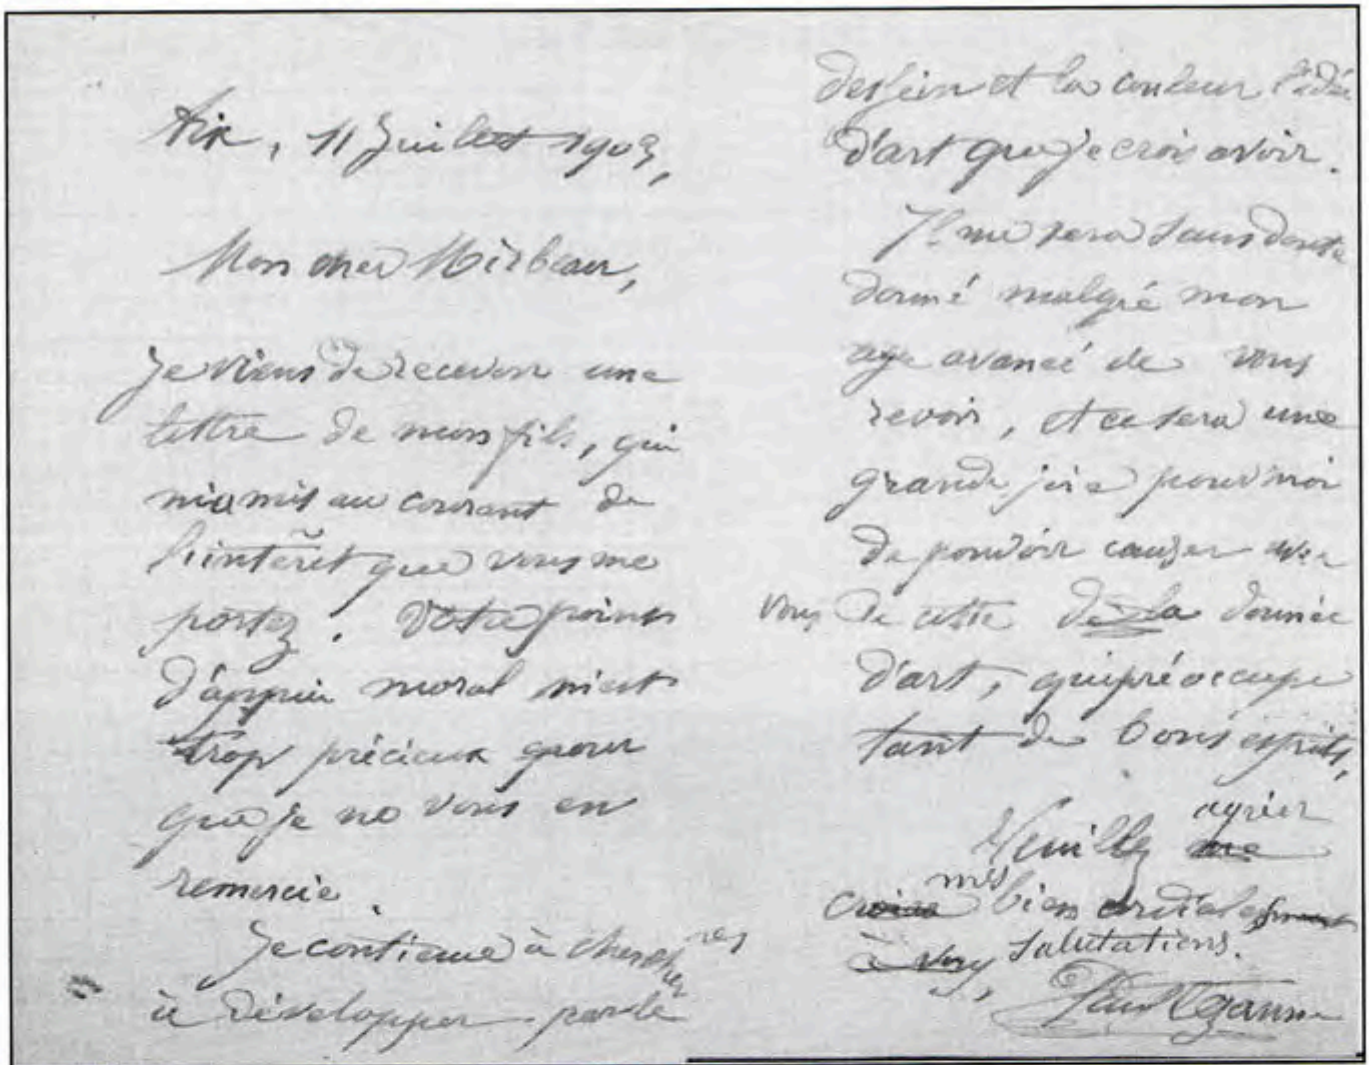 Aix, 11 Juillet 1903,
Mon cher Mirbeau,
Je viens de recevoir une
lettre de mon fils, qui
m'a mis au courant de
l'intérêt que vous me
portez. Votre point
d'appui moral m'est
trop précieux pour
que je ne vous en
remercie.
Je continue à chercher
à développer par le
dessein et la couleur l'idée
d'art que je crois avoir.
Il me sera sans doute
donné malgré mon
age avancé de vous
revoir, et ce sera une
grande joie pour moi
de pouvoir causer avec
vous de cette de la donnée
d'art, qui préoccupe
tant de bons esprits,
Veuillez me agréer
croire mes bien cordiales
à vous, salutations.
Paul Cezanne